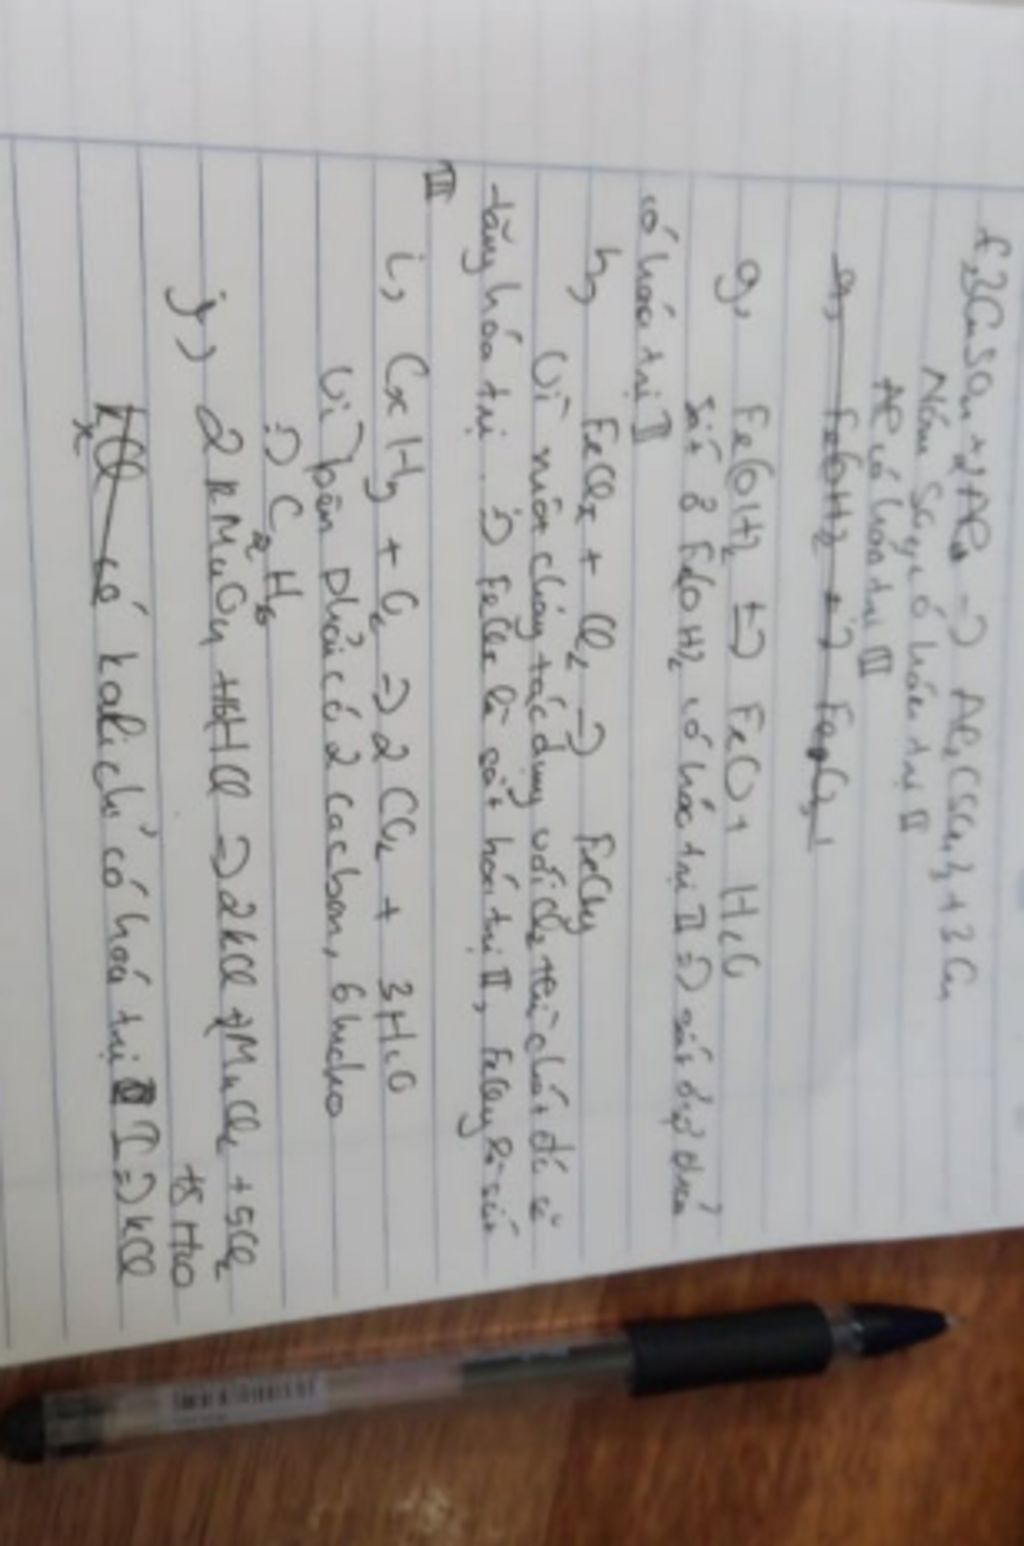 f, 3CuSO4 + 2Al => Al2(SO4)3 + 3Cu
Nhóm SO4 có hóa trị II
Al có hóa trị III
g, Fe(OH)2 => FeO + H2O
Sắt ở Fe(OH)2 có hóa trị II => sắt
có hóa trị II
h, FeClx + Cl2 => FeCly
Vì nên tác dụng với Cl2 thì chất đó sẽ
tăng hóa trị. => FeClx là sắt hóa trị II, FeCly là sắt
III
i, CxHy + O2 => 2CO2 + 3H2O
Vì bên phải có 2 cacbon, 6 hidro
=> C2H6
j, 2KMnO4 + 16HCl => 2KCl + 2MnCl2 + 5Cl2
+ 8H2O
kali chỉ có hoá trị I => KCl